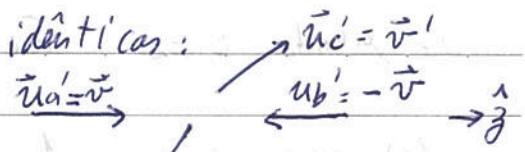 idênticas:
u⃗c' = v⃗'
u⃗a' = v⃗
ub' = -v⃗
ẑ